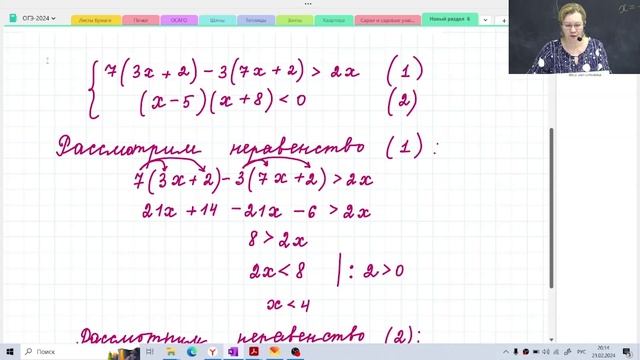 ОГЭ-2024
Листы бумаги
Печки
ОСАГО
Шины
Теплицы
Зонты
Квартира
Новый раздел 6
{ 7(3x + 2) - 3(7x + 2) > 2x (1)
(x - 5)(x + 8) < 0 (2)
Рассмотрим неравенство (1) :
7(3x + 2) - 3(7x + 2) > 2x
21x + 14 - 21x - 6 > 2x
8 > 2x
2x < 8 | : 2 > 0
x < 4
Рассмотрим неравенство (2):
Поиск
РУС
20:14
21.02.2024